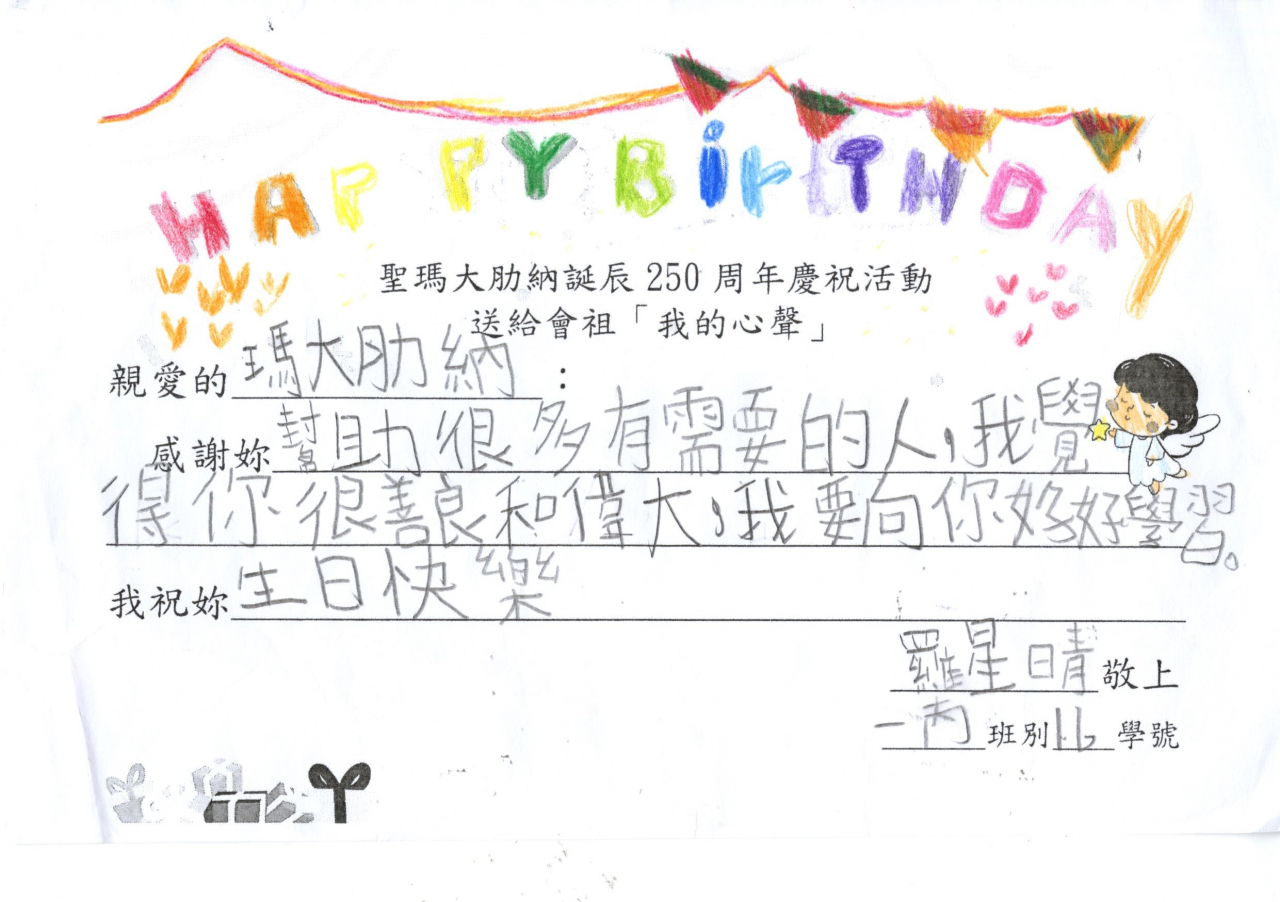 HAPPY BirTHDAY
聖瑪大肋納誕辰 250 周年慶祝活動
送給會祖「我的心聲」
親愛的瑪大肋納：
感謝妳幫助很多有需要的人，我覺
得你很善良和偉大，我要向你好好學習。
我祝妳生日快樂
羅星晴敬上
一丙班別 學號